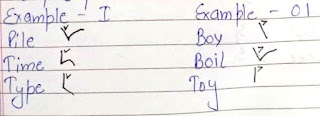 Example - I Example - OI
Pile Boy
Time Boil
Type Toy